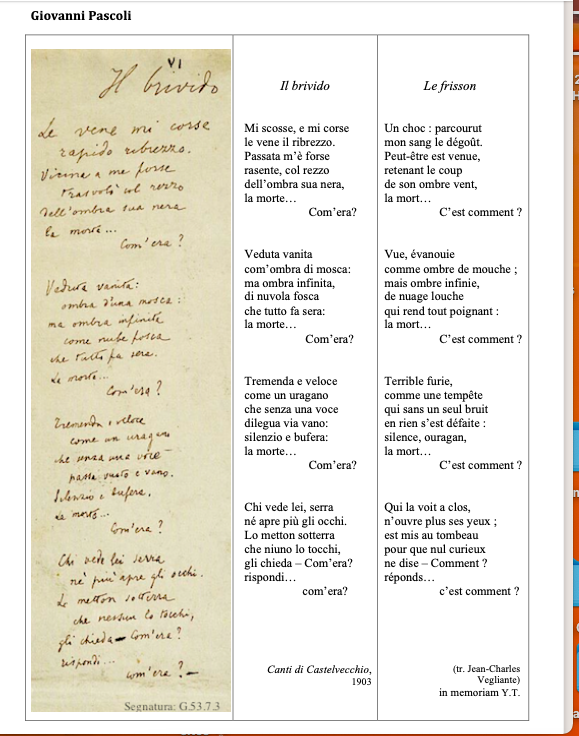 Giovanni Pascoli
VI
Il brivido
Le vene mi corse
rapido ribrezzo.
Vicina a me forse
trasvolò col rezzo
dell'ombra sua nera
la morte...
Com'era?
Veduta vanita:
ombra d'una mosca:
ma ombra infinita
come nube fosca
che tutto fa sera.
La morte...
Com'era?
Tremenda e veloce
come un uragano
che senza una voce
passa vasto e vano.
Silenzio e bufera.
La morte...
Com'era?
Chi vede lei serra
né più apre gli occhi.
Lo metton sotterra
che nessun lo tocchi,
gli chieda — Com'era?
rispondi...
com'era? —
Segnatura: G.53.7.3
Il brivido
Mi scosse, e mi corse
le vene il ribrezzo.
Passata m'è forse
rasente, col rezzo
dell'ombra sua nera,
la morte…
Com'era?
Veduta vanita
com'ombra di mosca:
ma ombra infinita,
di nuvola fosca
che tutto fa sera:
la morte…
Com'era?
Tremenda e veloce
come un uragano
che senza una voce
dilegua via vano:
silenzio e bufera:
la morte…
Com'era?
Chi vede lei, serra
né apre più gli occhi.
Lo metton sotterra
che niuno lo tocchi,
gli chieda – Com'era?
rispondi…
com'era?
Canti di Castelvecchio,
1903
Le frisson
Un choc : parcourut
mon sang le dégoût.
Peut-être est venue,
retenant le coup
de son ombre vent,
la mort…
C'est comment ?
Vue, évanouie
comme ombre de mouche ;
mais ombre infinie,
de nuage louche
qui rend tout poignant :
la mort…
C'est comment ?
Terrible furie,
comme une tempête
qui sans un seul bruit
en rien s'est défaite :
silence, ouragan,
la mort…
C'est comment ?
Qui la voit a clos,
n'ouvre plus ses yeux ;
est mis au tombeau
pour que nul curieux
ne dise – Comment ?
réponds…
c'est comment ?
(tr. Jean-Charles
Vegliante)
in memoriam Y.T.